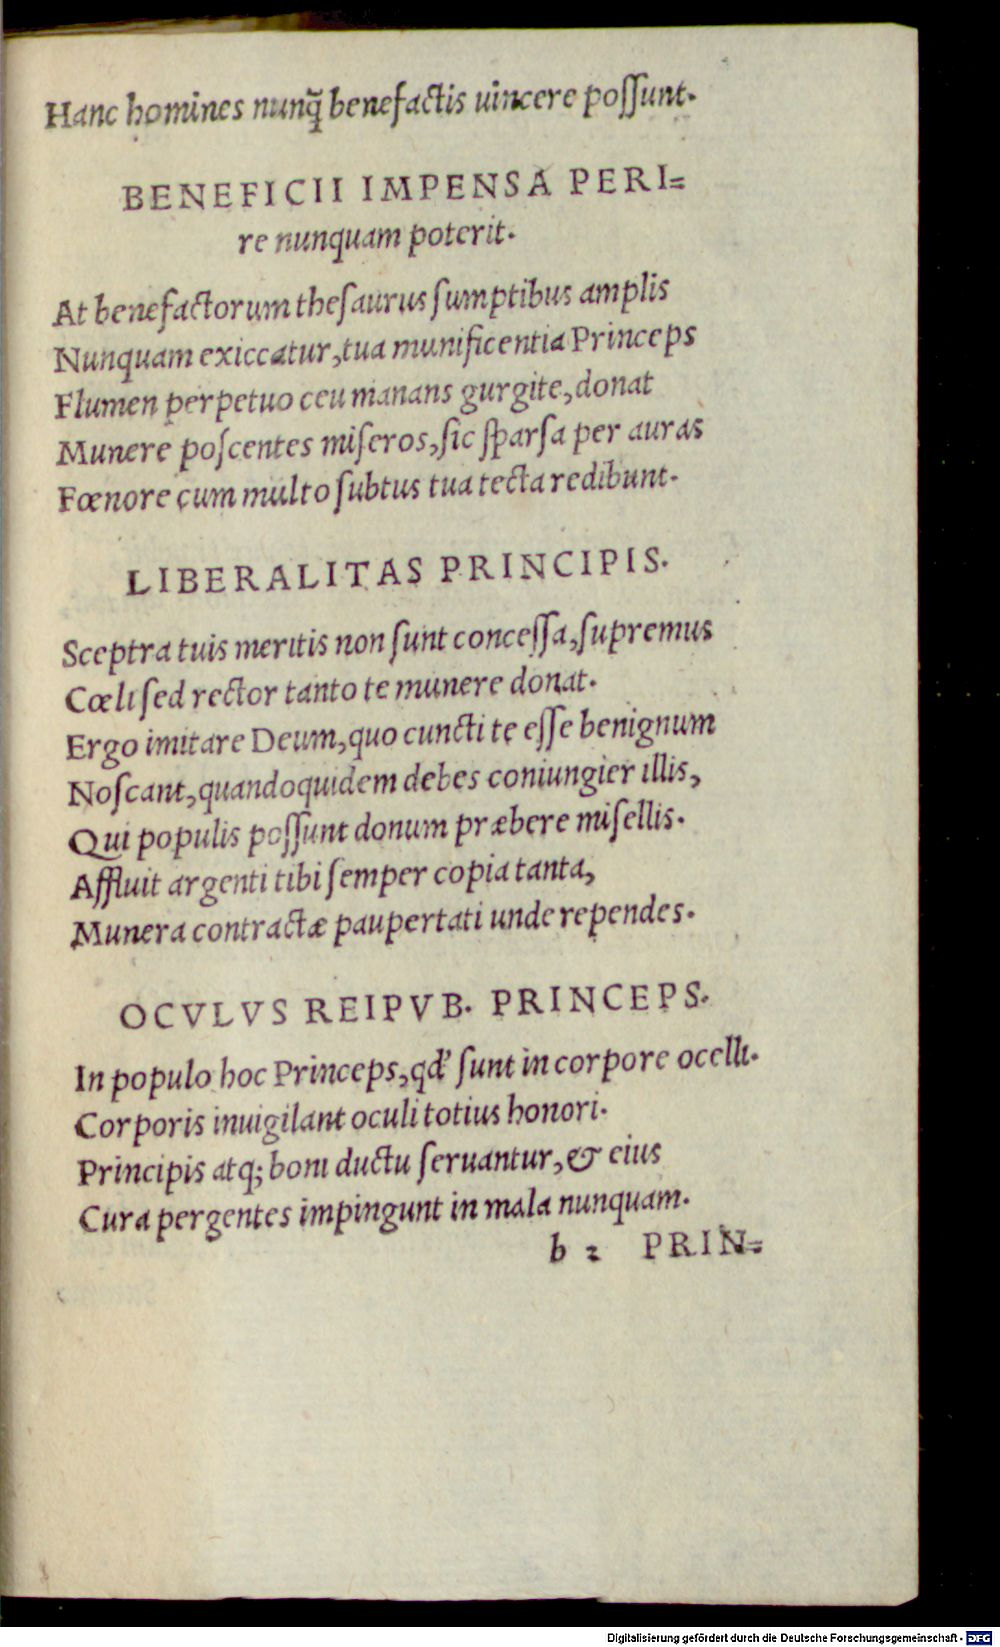 Hanc homines nunq̃ benefactis uincere poſſunt.
BENEFICII IMPENSA PERI=
re nunquam poterit.
At benefactorum theſaurus ſumptibus amplis
Nunquam exiccatur, tua munificentia Princeps
Flumen perpetuo ceu manans gurgite, donat
Munere poſcentes miſeros, ſic ſparſa per auras
Fœnore cum multo ſubtus tua tecta redibunt.
LIBERALITAS PRINCIPIS.
Sceptra tuis meritis non ſunt conceſſa, ſupremus
Cœli ſed rector tanto te munere donat.
Ergo imitare Deum, quo cuncti te eſſe benignum
Noſcant, quandoquidem debes coniungier illis,
Qui populis poſſunt donum præbere miſellis.
Affluit argenti tibi ſemper copia tanta,
Munera contractæ paupertati unde rependes.
OCVLVS REIPVB. PRINCEPS.
In populo hoc Princeps, qd' ſunt in corpore ocelli.
Corporis inuigilant oculi totius honori.
Principis atq; boni ductu ſeruantur, & eius
Cura pergentes impingunt in mala nunquam.
b 2 PRIN=
Digitalisierung gefördert durch die Deutsche Forschungsgemeinschaft - DFG